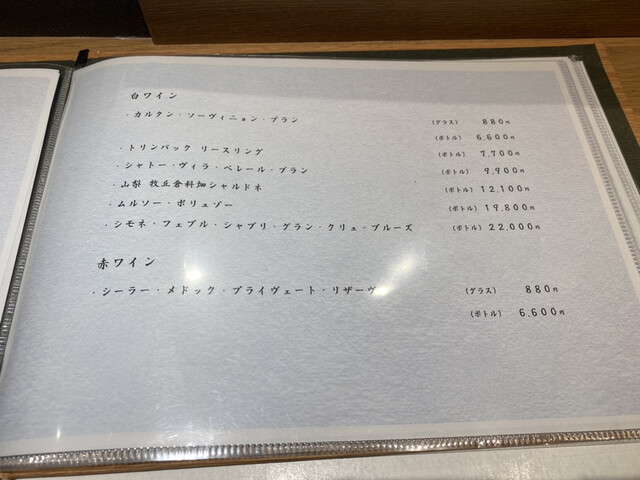 白ワイン
・カルタン・ソーヴィニョン・ブラン (グラス) 880円
(ボトル) 6,600円
・トリンバック リースリング (ボトル) 7,700円
・シャトー・ヴィラ・ベレール・ブラン (ボトル) 9,900円
・山梨 牧丘倉科畑シャルドネ (ボトル) 12,100円
・ムルソー・ポリュゾー (ボトル) 19,800円
・シモネ・フェブル・シャブリ・グラン・クリュ・プルーズ (ボトル) 22,000円
赤ワイン
・シーラー・メドック・プライヴェート・リザーヴ (グラス) 880円
(ボトル) 6,600円